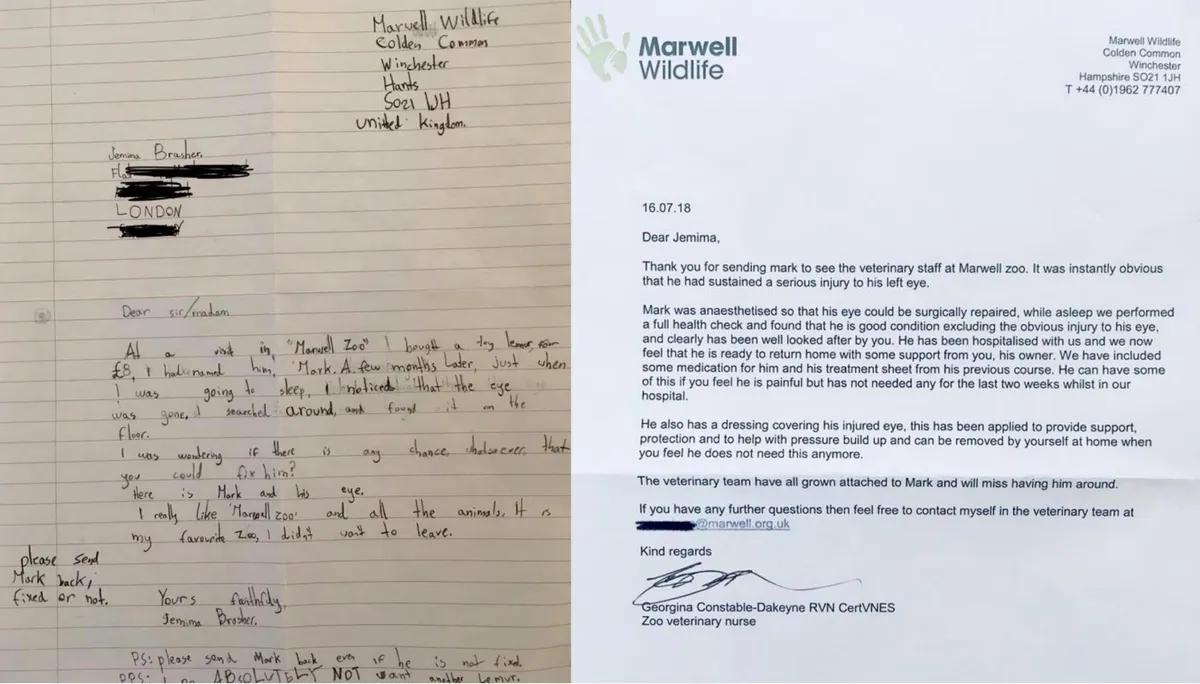 Marwell Wildlife
Colden Common
Winchester
Hants
SO21 1JH
United Kingdom.
Jemima Brasher.
Flat
LONDON
Dear sir/madam
At a visit in, "Marwell Zoo" I bought a toy lemur, for
£8, I had named him, 'Mark. A few months later, just when
I was going to sleep, I noticed that the eye
was gone, I searched around, and found it on the
floor.
I was wondering if there is any chance, whatsoever, that
you could fix him?
Here is Mark and his eye.
I really like 'Marwell zoo' and all the animals. It is
my favourite zoo, I didn't want to leave.
please send
Mark back,
fixed or not.
Yours faithfully,
Jemima Brasher.
PS: please send Mark back even if he is not fixed.
PPS: I do ABSOLUTELY NOT want another Lemur.
Marwell
Wildlife
Marwell Wildlife
Colden Common
Winchester
Hampshire SO21 1JH
T +44 (0)1962 777407
16.07.18
Dear Jemima,
Thank you for sending mark to see the veterinary staff at Marwell zoo. It was instantly obvious
that he had sustained a serious injury to his left eye.
Mark was anaesthetised so that his eye could be surgically repaired, while asleep we performed
a full health check and found that he is good condition excluding the obvious injury to his eye,
and clearly has been well looked after by you. He has been hospitalised with us and we now
feel that he is ready to return home with some support from you, his owner. We have included
some medication for him and his treatment sheet from his previous course. He can have some
of this if you feel he is painful but has not needed any for the last two weeks whilst in our
hospital.
He also has a dressing covering his injured eye, this has been applied to provide support,
protection and to help with pressure build up and can be removed by yourself at home when
you feel he does not need this anymore.
The veterinary team have all grown attached to Mark and will miss having him around.
If you have any further questions then feel free to contact myself in the veterinary team at
@marwell.org.uk
Kind regards
Georgina Constable-Dakeyne RVN CertVNES
Zoo veterinary nurse